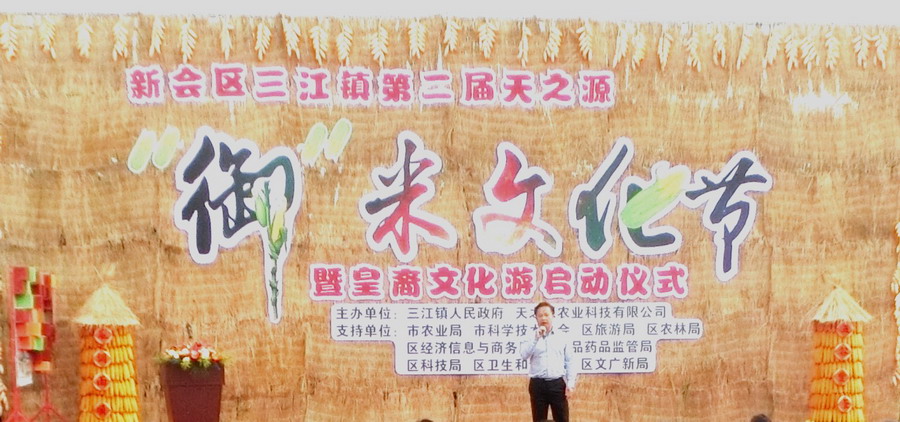 新会区三江镇第二届天之源
“御”米文化节
暨皇裔文化游启动仪式
主办单位：三江镇人民政府 天之 农业科技有限公司
支持单位：市农业局 市科学技 会 区旅游局 区农林局
区经济信息与商务 品药品监管局
区科技局 区卫生和 区文广新局